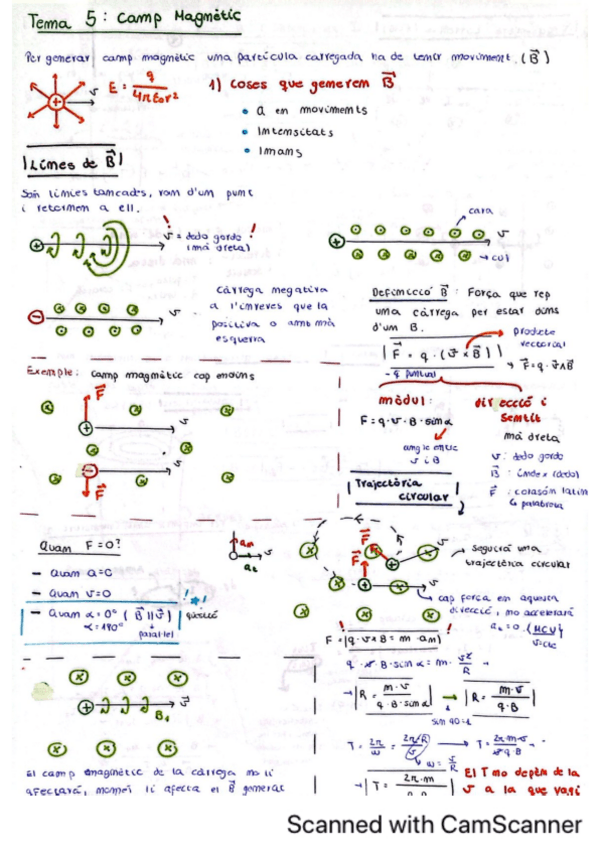 Tema 5: Camp Magnètic
Per generar camp magnètic una partícula carregada ha de tenir moviment. (B⃗)
E = q / 4πε₀r²
1) Coses que generem B⃗
• Q en moviments
• Intensitats
• Imans
|Línies de B⃗|
Són línies tancades, van d'un punt
i retornen a ell.
v = dedo gordo !
(mà dreta)
cara
v
cul
Càrrega negativa
a l'inreves que la
positiva o amb mà
esquerra
v
Definició B⃗: Força que rep
una càrrega per estar dins
d'un B.
producte
vectorial
|F⃗ = q · (v⃗ × B⃗)|
→ F⃗ = q · v⃗ ∧ B⃗
- q puntual
Exemple: camp magnètic cap endins
F⃗
v
v
F⃗
mòdul:
F = q · v · B · sin α
angle entre
v i B
direcció i
sentit
mà dreta
v⃗: dedo gordo
B⃗: índex (dedo)
F⃗: corazón
|Trajectòria
circular|
Quan F = 0?
- Quan Q=0
- Quan v=0
- Quan α = 0° (B⃗ ∥ v⃗)
α = 180°
paral·lel
v
F⃗
F⃗
v
v
→ Seguirà una
trajectòria circular
cap força en aquesta
direcció, no accelerarà
aₜ = 0 (MCU)
F = |q · v × B = m · aₙ|
q · v · B · sin α = m · v²/R
→ |R = m · v / q · B · sin α| → |R = m · v / q · B|
sin 90 = 1
T = 2π/ω = 2πR/v → T = 2π m v / v q B
ω = v/R
→ |T = 2π · m
El T no depèn de la
v a la que vagi
v
B₁
El camp magnètic de la càrrega no li
afectarà, només li afecta el B⃗ generat
Scanned with CamScanner